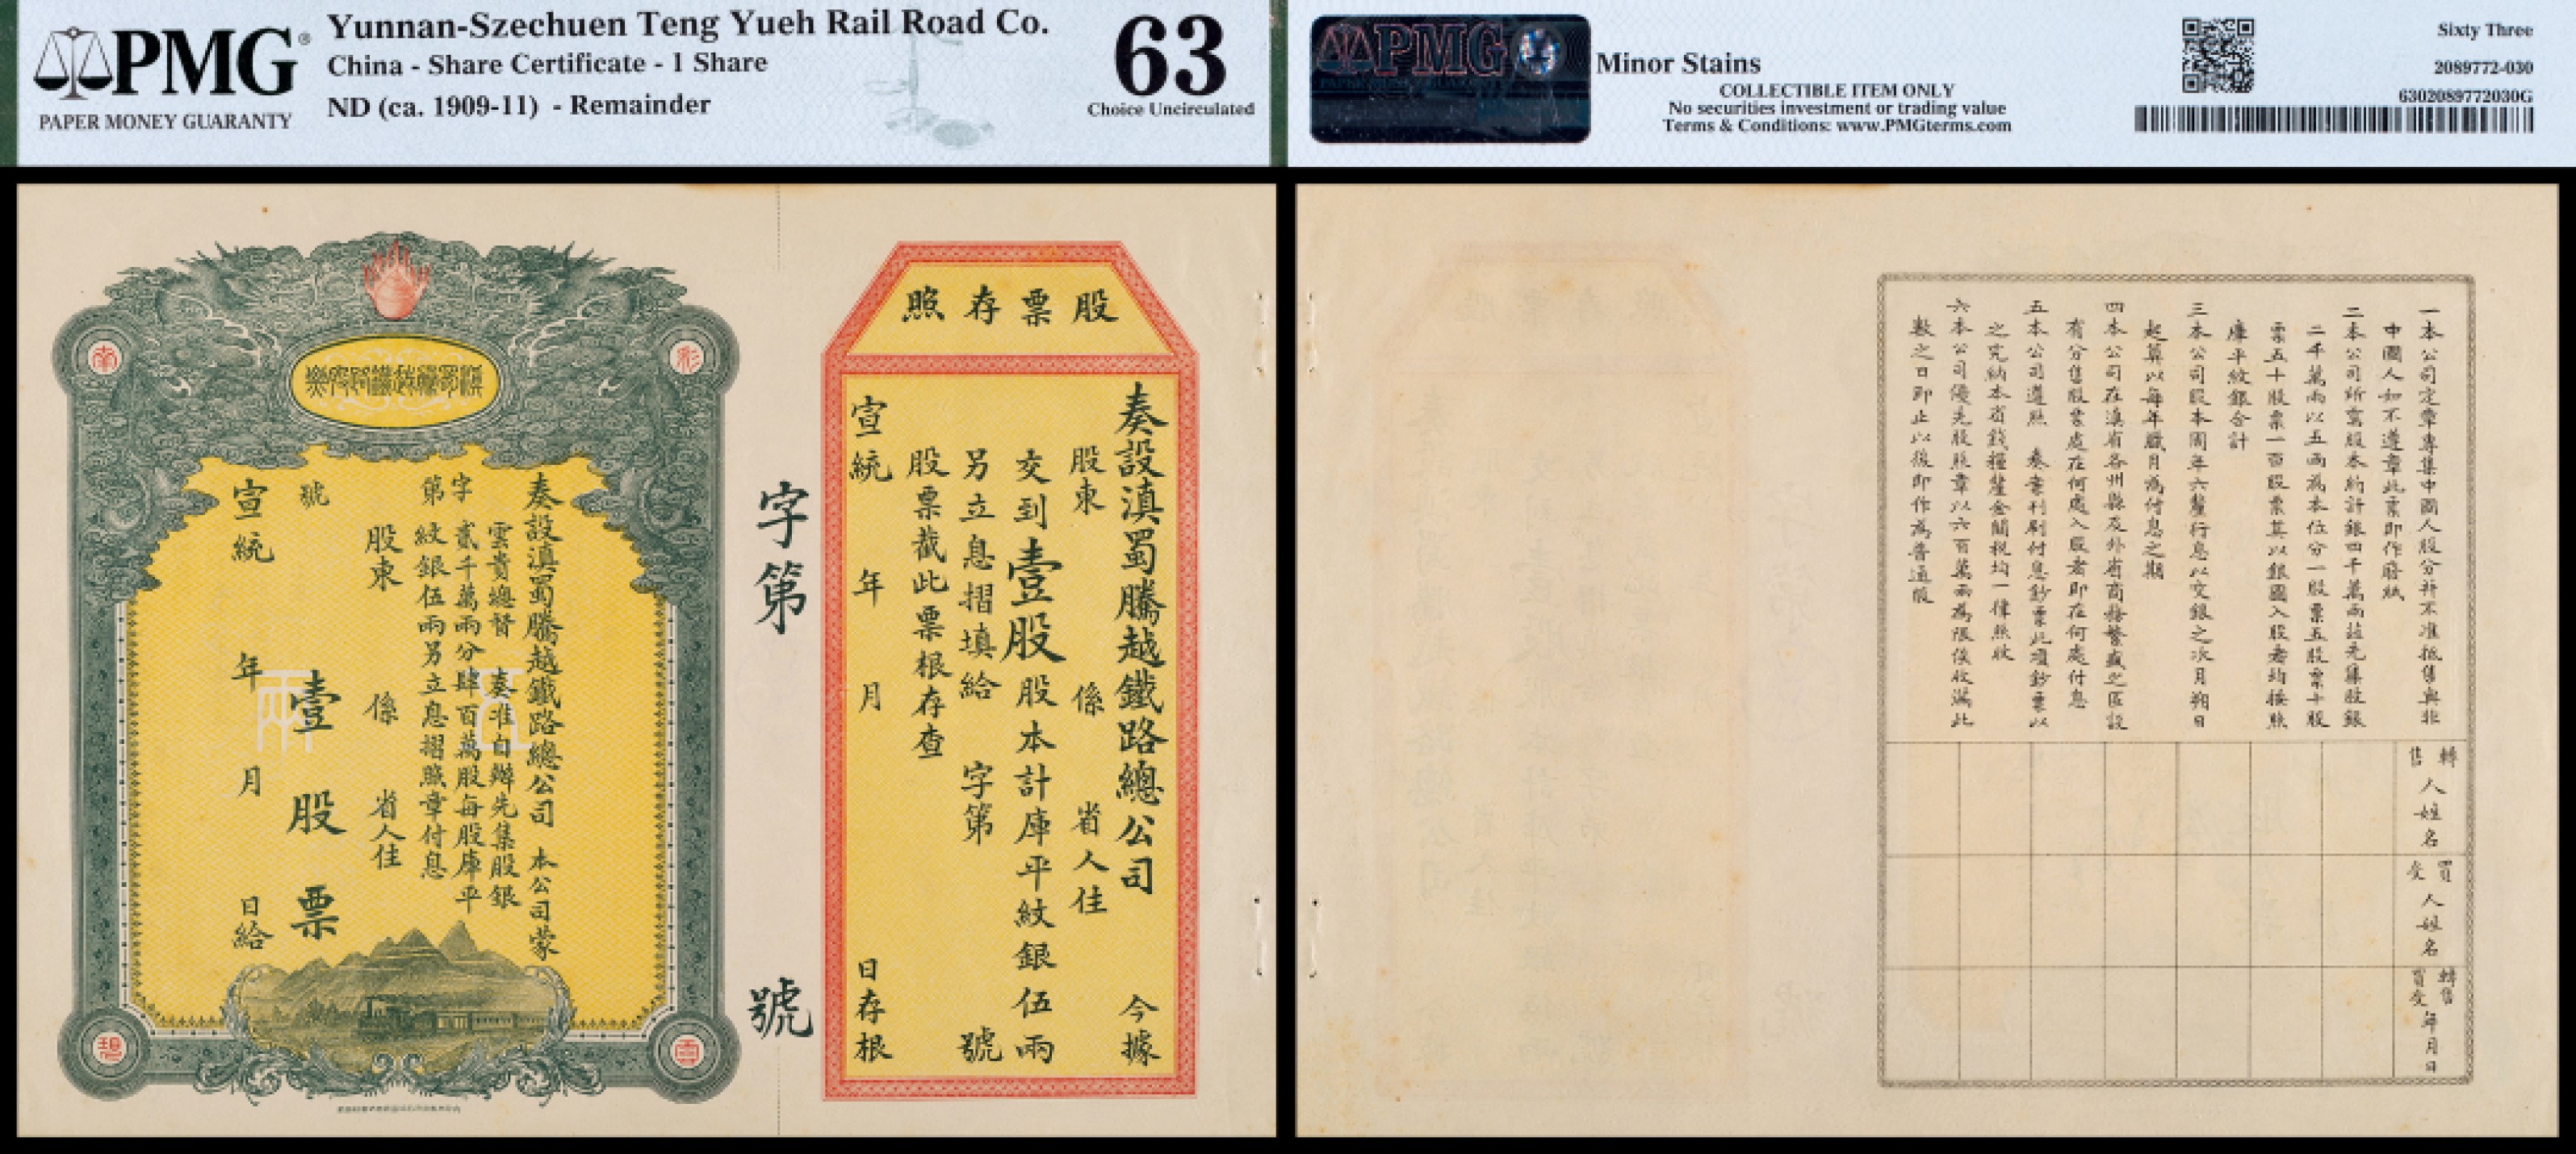 PMG®
PAPER MONEY GUARANTY
Yunnan-Szechuen Teng Yueh Rail Road Co.
China - Share Certificate - 1 Share
ND (ca. 1909-11) - Remainder
63
Choice Uncirculated
PMG
Minor Stains
COLLECTIBLE ITEM ONLY
No securities investment or trading value
Terms & Conditions: www.PMGterms.com
Sixty Three
2089772-030
6302089772030G
滇蜀騰越鐵路股票
彩
南
雲
碧
奏設滇蜀騰越鐵路總公司 本公司蒙
雲貴總督 奏准自辦先集股銀
貳千萬兩分肆百萬股每股庫平
紋銀伍兩另立息摺照章付息
字
第
號
股東 係 省人住
壹股票
宣統 年 月 日給
伍兩
字第 號
股票存照
奏設滇蜀騰越鐵路總公司 今據
股東 係 省人住
交到壹股股本計庫平紋銀伍兩
另立息摺填給 字第 號
股票截此票根存查
宣統 年 月 日存根
一本公司定章專集中國人股分幷不准抵售與非
中國人如不遵章此票即作廢紙
二本公司所需股本約計銀四千萬兩茲先集股銀
二千萬兩以五兩為本位分一股票五股票十股
票五十股票一百股票其以銀圓入股者均按照
庫平紋銀合計
三本公司股本周年六釐行息以交銀之次月朔日
起算以每年臘月為付息之期
四本公司在滇省各州縣及外省商務繁盛之區設
有分售股票處在何處入股者即在何處付息
五本公司遵照 奏案刊刷付息鈔票此項鈔票以
之完納本省錢糧釐金關稅均一律照收
六本公司優先股照章以六百萬兩為限俟收滿此
數之日即止以後即作為普通股
轉售人姓名
買受人姓名
轉售買受年月日